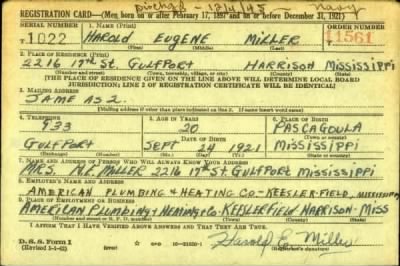 Disch'd - 12/4/45 - Navy
REGISTRATION CARD—(Men born on or after February 17, 1897 and on or before December 31, 1921)
SERIAL NUMBER 1. NAME (Print) ORDER NUMBER
1022 HAROLD EUGENE MILLER 11561
(First) (Middle) (Last)
2. PLACE OF RESIDENCE (Print)
2216 17th St. GULFPORT HARRISON MISSISSIPPI
(Number and street) (Town, township, village, or city) (County) (State)
[THE PLACE OF RESIDENCE GIVEN ON THE LINE ABOVE WILL DETERMINE LOCAL BOARD
JURISDICTION; LINE 2 OF REGISTRATION CERTIFICATE WILL BE IDENTICAL]
3. MAILING ADDRESS
SAME AS 2.
[Mailing address if other than place indicated on line 2. If same insert word same]
4. TELEPHONE 5. AGE IN YEARS 6. PLACE OF BIRTH
733 20 PASCAGOULA
DATE OF BIRTH (Town or county)
GULFPORT SEPT 24 1921 MISSISSIPPI
(Exchange) (Number) (Mo.) (Day) (Yr.) (State or country)
7. NAME AND ADDRESS OF PERSON WHO WILL ALWAYS KNOW YOUR ADDRESS
MRS. MILLER 2216 17th ST GULFPORT MISSISSIPPI
8. EMPLOYER'S NAME AND ADDRESS
AMERICAN PLUMBING & HEATING CO - KEESLER FIELD, MISSISSIPPI
9. PLACE OF EMPLOYMENT OR BUSINESS
AMERICAN PLUMBING & HEATING CO - KEESLER FIELD HARRISON - MISS
(Number and street or R. F. D. number) (Town) (County) (State)
I AFFIRM THAT I HAVE VERIFIED ABOVE ANSWERS AND THAT THEY ARE TRUE.
D. S. S. Form 1
(Revised 1-1-42) (over) 16—21630-1 Harold E. Miller
(Registrant's signature)